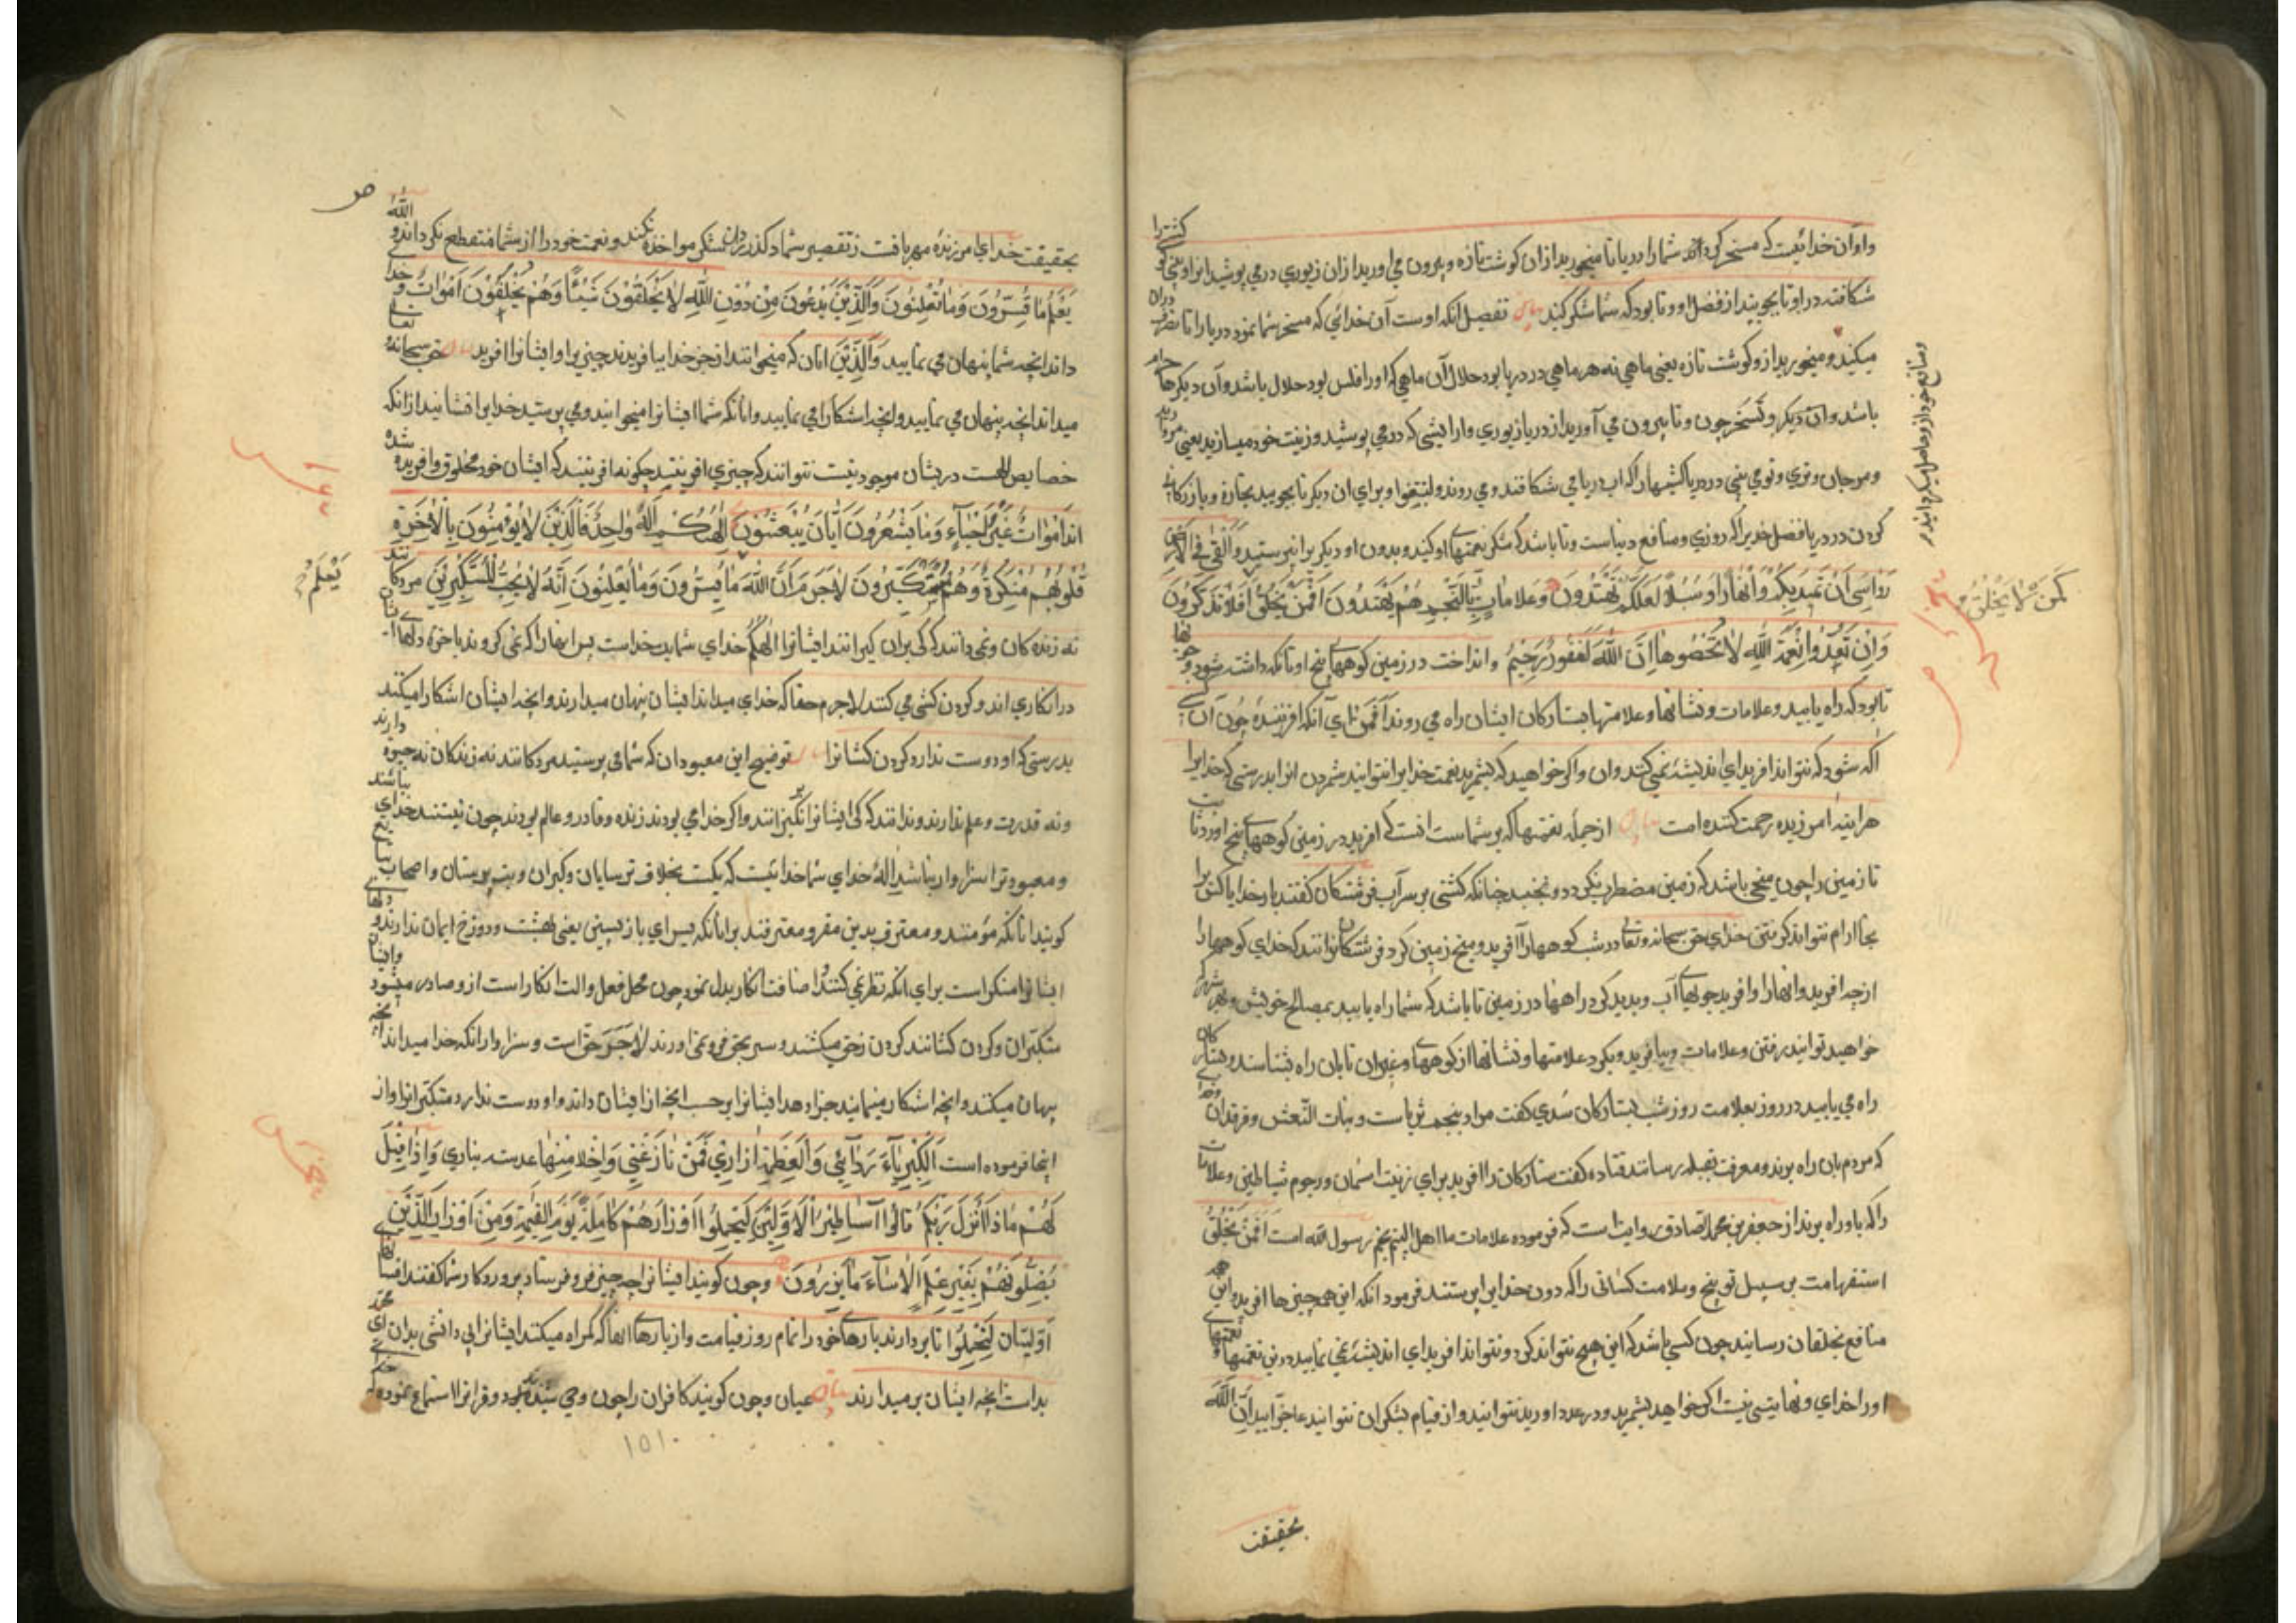 واو آن خدائیست که مسخر کرداند شما را دریا تا میخورید ازان کوشت تازه و بیرون می اورید ازان زیوری در می پوشید انرا و بینی تو کشتی را
شکافنده در او تا بجویید از فضل او و تا بود که شما شکر کنید تفصیل آنکه اوست آن خدائی که مسخر شما نمود دریا را تا تصرف دران
میکنید و میخورید ازو کوشت تازه یعنی ماهی نه هر ماهی در دریا بود حلال آن ماهی که اورا فلس بود حلال باشد و آن دیکرها حرام
باشد وان دیکر و تستخرجون و تا بیرون می آورید از دریا زیوری و ارایشی که در می پوشید و زینت خود میسازید یعنی
و مرجان و تری و تو می بینی در دریا کشتیها را که اب دریا می شکافند و می روند و لتبتغوا و برای ان دیکر تا بجویید تجارة و بازرکانی
کردن در دریا فضل خدیرا که روزی و منافع دنیاست و تا باشد که شکر نعمتهای او کنید و بدون او دیکریرا نپرستید والقی فی الارض
رواسی ان تمید بکم وانهارا و سبلا لعلکم تهتدون وعلامات وبالنجم هم یهتدون افمن یخلق افلا تذکرون
کمن لا یخلق
و منافع خود ازو حاصل میکردانید
وان تعدوا نعمة الله لا تحصوها ان الله لغفور رحیم و انداخت در زمین کوههای بیخ اور تا نکه داشته شود و جویها
تا بود که راه یابید و علامات و نشانها و علامتها بستارکان ایشان راه می روند افمن ای آنکه افریننده چون آن
اکه شود که نتواند افرید ای اندیشه نمی کنند وان و اکر خواهید که بشمرید نعمت خدایرا نتوانید شمردن انرا بدرستی که خدایرا
هراینه امرزیده رحمت کننده است از جمله نعمتها که بر شماست انست که افرید در زمین کوههای بیخ اور تا
تا زمین را چون میخی باشد که زمین مضطرب نکردد و نجنبد چنانکه کشتی بر سر آب فرشتکان کفتند بار خدایا کس برا
بجا ارام نتواند کرفتن خدای حق سبحانه و تعالی در شب کوهها را آفرید و میخ زمین کرد فرشتکان ندانستند که خدای کوهها را
از چه افرید و انهارا و افرید جویهای آب و پدید کرد راهها در زمین تا باشد که شما راه یابید بمصالح خویش و بهر شهر که
خواهید توانید رفتن وعلامات و بیافرید و بکرد علامتها و نشانها از کوهها و غیر ان تا بان راه بشناسند و بستارکان
راه می یابید در روز بعلامت روز شب بستارکان سدی کفت مراد بنجم ثریاست و بنات النعش و فرقدان
که مردم بان راه برند و معرفت بقبله رسانند قتاده کفت ستارکان را افرید برای زینت اسمان و رجوم شیاطین و علامات
را که باو راه برند از جعفر بن محمد الصادق روایتست که فرموده علامات ما اهل البیتیم نجم رسول الله است افمن یخلق
استفهامست بر سبیل توبیخ و ملامت کسانی را که دون خدایرا پرستند فرمود انکه این همه چیزها افریده این
منافع بخلقان رسانید چون کسی باشد که این هیچ نتواند کرد و نتواند افرید ای اندیشه نمی نمایید درین نعمتهای
اورا خدای و نهایتی نیست اکر خواهید بشمرید و در عدد اورید نتوانید و از قیام بشکر ان نتوانید عاجزاید ان الله
بحقیقت
بحقیقت خدای امرزنده مهربانست ز تقصیر شما در کذرد و نعمت خود را از شما منقطع نکرداند و الله
یعلم ما تسرون وما تعلنون والذین یدعون من دون الله لا یخلقون شیئا وهم یخلقون اموات و خدا تعالی
داند انچه شما پنهان می نمایید والذین انان که میخوانند از جز خدا نیافریدند چیزی را و ایشانرا افرید حق سبحانه
میداند انچه پنهان می نمایید و انچه اشکارا می نمایید و انانکه شما ایشانرا میخوانید و می پرستید خدایرا نشانید از انکه
خصایص الهیت دریشان موجود نیست نتوانند که چیزی افرینند چکونه افرینند که ایشان خود مخلوق و افریده شده
اند اموات غیر احیآء وما یشعرون ایان یبعثون الهکم اله واحد فالذین لا یؤمنون بالاخرة
قلوبهم منکرة وهم مستکبرون لا جرم ان الله ما یسرون وما یعلنون انه لا یحب المستکبرین مردکانند
یعلم
نه زنده کان و نمی دانند که کی بران کیرانند ایشانرا الهکم خدای شما یک خداست پس انها را که نمی کروند باخرة دلهای
در انکاری اند و کردن کشی می کنند لاجرم حقا که خدای میداند ایشان پنهان میدارند و انچه ایشان اشکارا میکنند
بدرستی که او دوست ندارد کردن کشانرا توضیح این معبودان که شما می پرستید مردکانند نه زندکان نه حیوة دارند
و نه قدرت و علم ندارند و ندانند که کی ایشانرا برانکیزانند و اکر خدا می بودند زنده و قادر و عالم بودند چون نیستند خدای
و معبود ترا سزاوار نباشد اله خدای شما خدائیست که یکیست بخلاف ترسایان و کبران و بت پرستان و اصحاب
کویند انانکه مؤمنند و معترف بدین مقر و معترفند برانانکه بسرای باز پسین یعنی بهشت و دوزخ ایمان ندارند و دلهای
ایشانرا منکر است برای انکه نظر نمی کنند و اضافت انکار بدل نمود چون محل فعل و الت انکار است ازو صادر میشود وایشان
متکبران و کردن کشانند کردن ز حق میکشند و سر بحق فرو نمی اورند لا جرم حق است و سزاوار انکه خدا میداند انچه
پنهان میکنند و انچه اشکار مینمایند جزا دهد ایشانرا بر حسب انچه از ایشان داند و او دوست ندارد متکبرانرا و از
اینجا فرموده است الکبریآء ردآئی والعظمة ازاری فمن نازعنی واحدا منهما عذبته بناری واذا قیل
لهم ماذا انزل ربکم قالوا آساطیر الاولین لیحملوا اوزارهم کاملة یوم القیمة ومن اوزار الذین
یضلونهم بغیر علم الا ساء ما یزرون و چون کویند ایشانرا چه چیز فرو فرستاد پروردکار شما کفتند
اولینان لیحملوا تا بردارند بارهای خود را تمام روز قیامت و از بارهای انها که کمراه میکنند ایشانرا بی دانشی بدان ای محمد
بداست انچه ایشان بر میدارند عیان و چون کویند کافران را چون وحی شنیده بود و قرانرا استماع نموده
۱۵۱۰